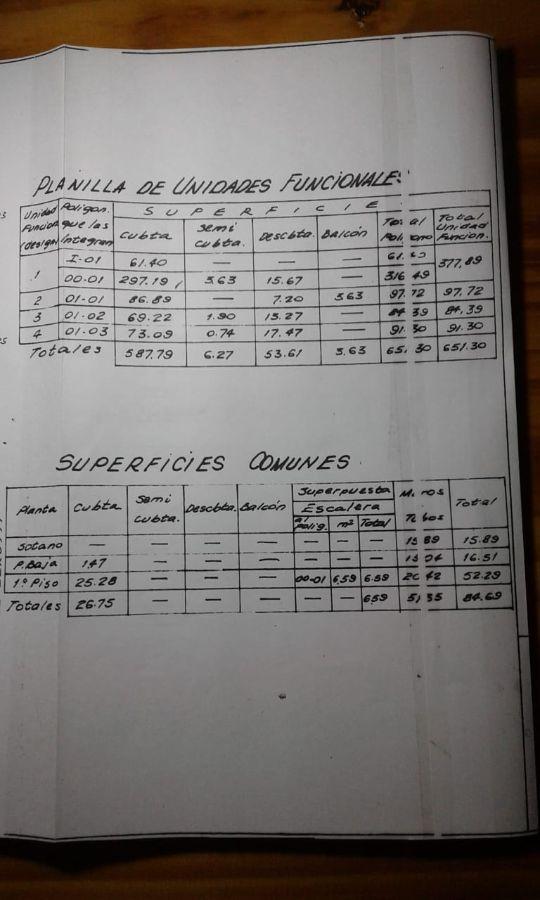 PLANILLA DE UNIDADES FUNCIONALES
Unidad Funcion. (design) Poligon. que las integran SUPERFICIE
Cubta Semi cubta. Descbta. Balcón Total Poligono Total Unidad Funcion.
1 I-01 61.40 — — — 61.40 377,89
00-01 297.19 3.63 15.67 — 316.49
2 01-01 86.89 — 7.20 3.63 97.72 97.72
3 01-02 69.22 1.90 13.27 — 84.39 84,39
4 01-03 73.09 0.74 17.47 — 91.30 91.30
Totales 587.79 6.27 53.61 3.63 651.30 651.30
SUPERFICIES COMUNES
Planta Cubta Semi cubta. Descbta. Balcón Superpuesta Escalera Muros Total
al polig. m² Total
Sotano — — — — — — — 15.89 15.89
P. Baja 1.47 — — — — — — 15.04 16.51
1º Piso 25.28 — — — 00-01 6.59 6.59 20.42 52.29
Totales 26.75 — — — — — 6.59 51.35 84.69